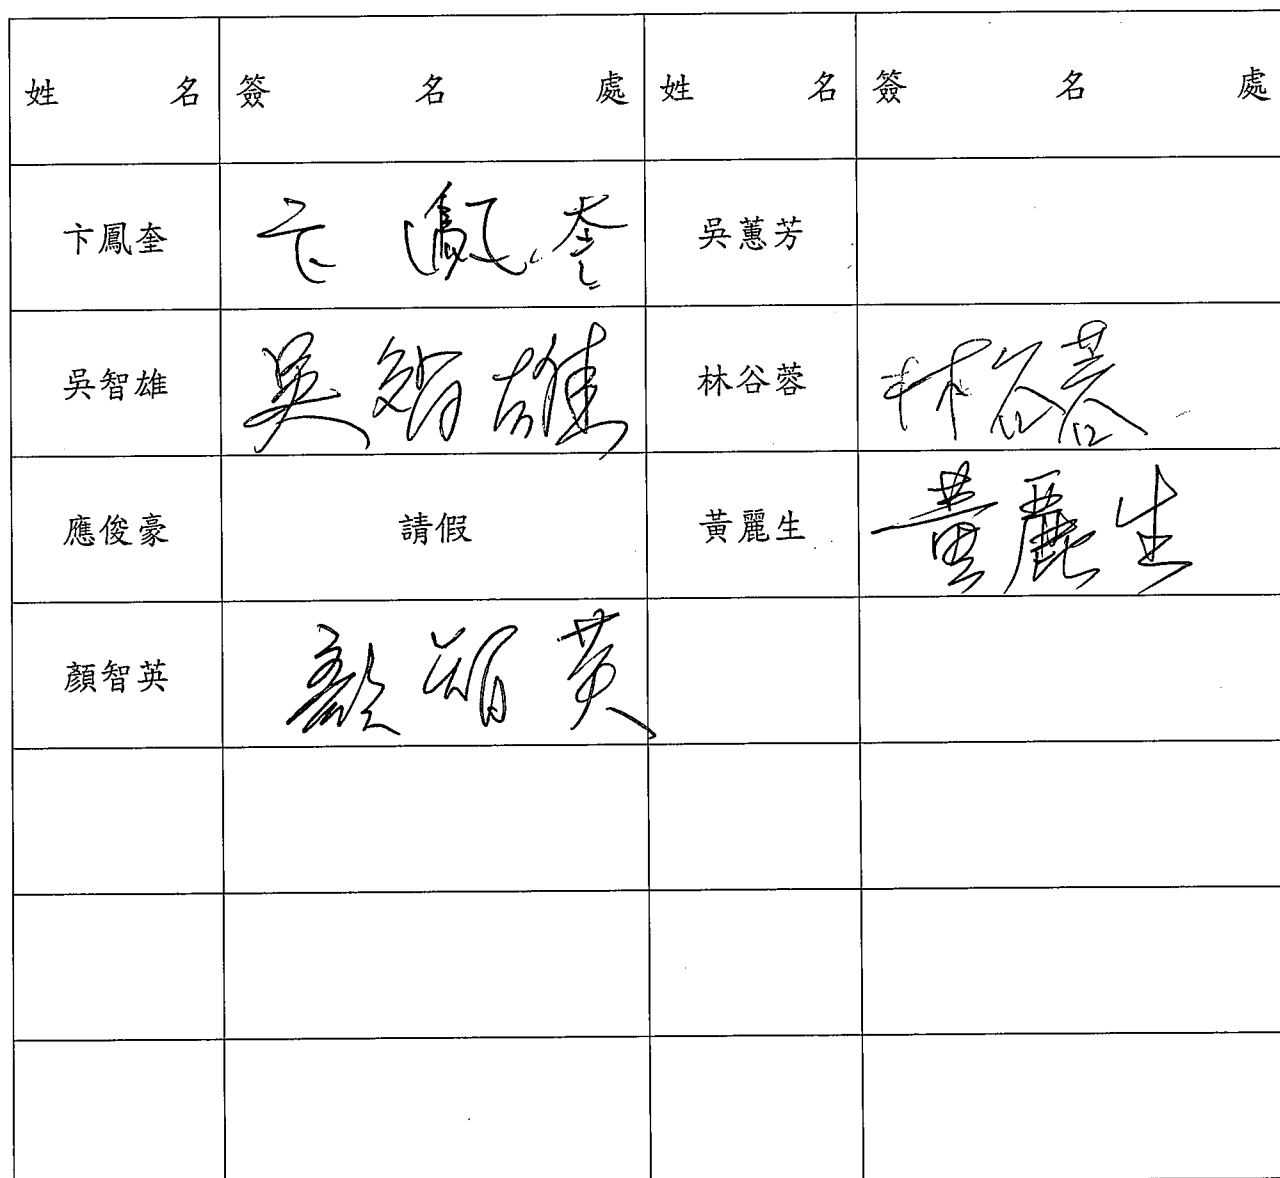 姓名 簽名處 姓名 簽名處
卞鳳奎 卞鳳奎 吳蕙芳
吳智雄 吳智雄 林谷蓉 林谷蓉
應俊豪 請假 黃麗生 黃麗生
顏智英 顏智英